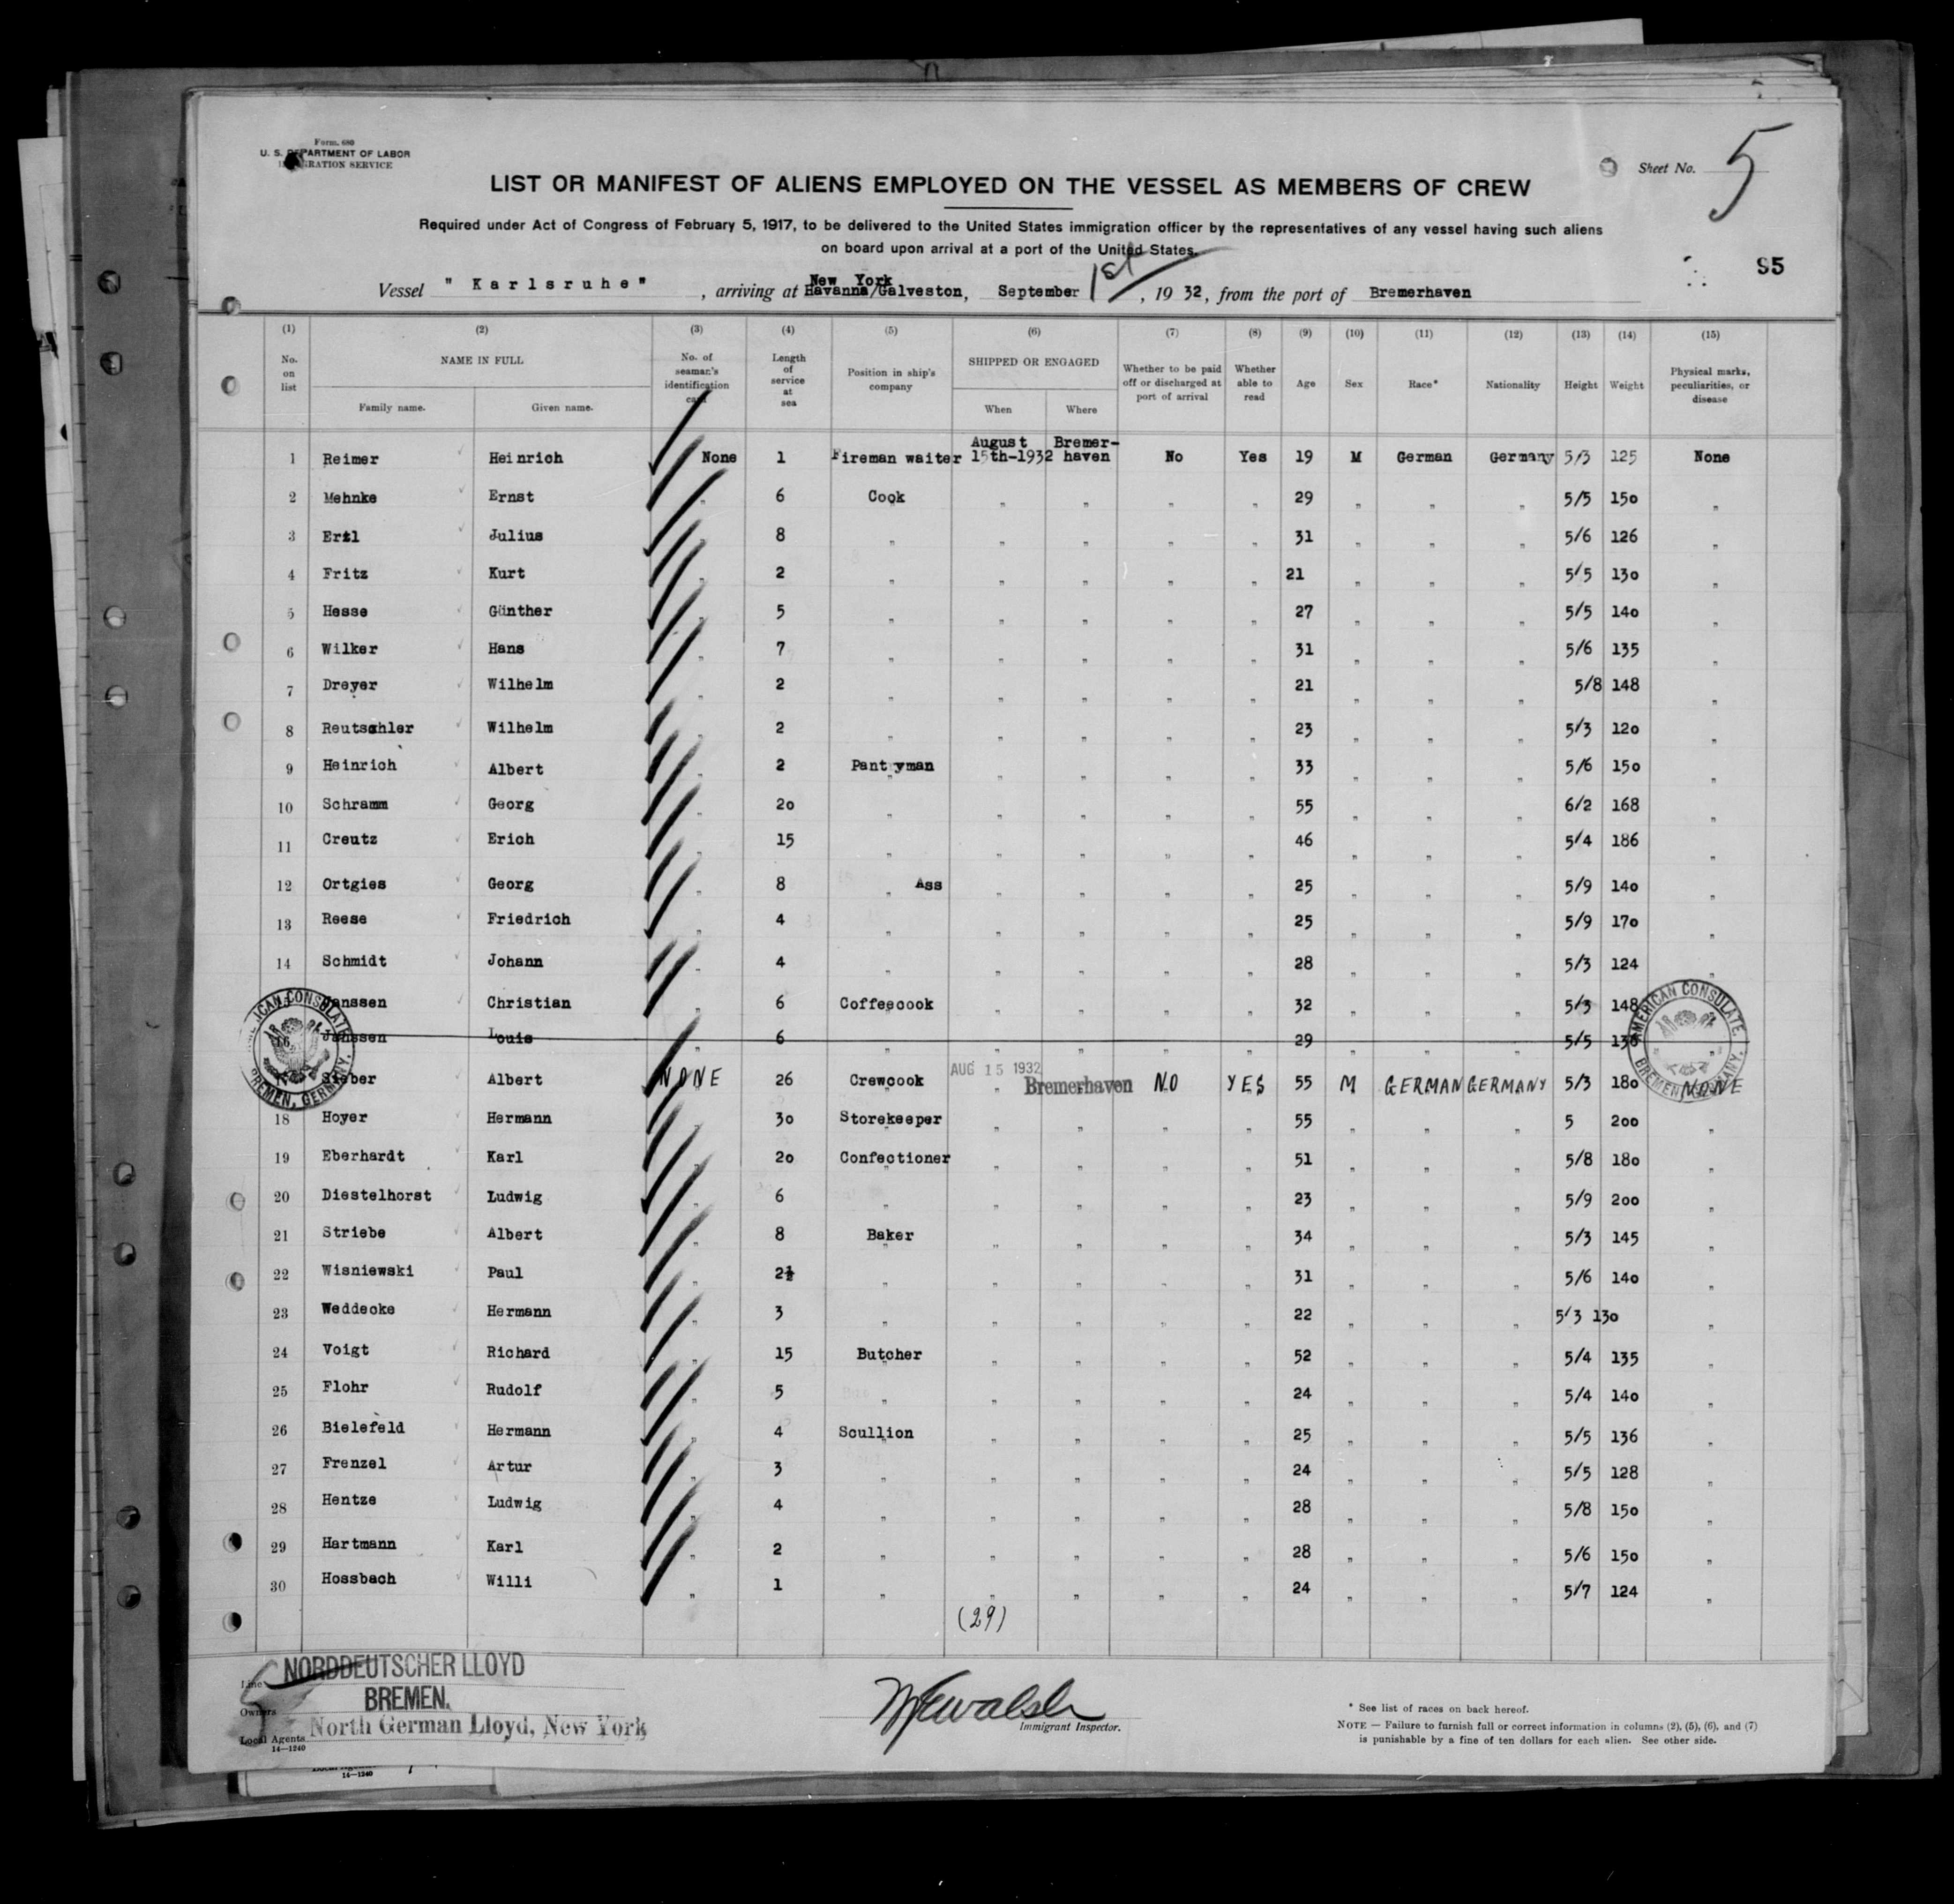 Form. 680
U. S. DEPARTMENT OF LABOR
IMMIGRATION SERVICE
Sheet No. 5
LIST OR MANIFEST OF ALIENS EMPLOYED ON THE VESSEL AS MEMBERS OF CREW
Required under Act of Congress of February 5, 1917, to be delivered to the United States immigration officer by the representatives of any vessel having such aliens
on board upon arrival at a port of the United States.
95
New York
Vessel " Karlsruhe " , arriving at Havanna/Galveston, September 1st , 19 32, from the port of Bremerhaven
(1) (2) (3) (4) (5) (6) (7) (8) (9) (10) (11) (12) (13) (14) (15)
No. on list NAME IN FULL Family name. Given name. No. of seaman's identification card Length of service at sea Position in ship's company SHIPPED OR ENGAGED When Where Whether to be paid off or discharged at port of arrival Whether able to read Age Sex Race* Nationality Height Weight Physical marks, peculiarities, or disease
August Bremer-
1 Reimer Heinrich None 1 Fireman waiter 15th-1932 haven No Yes 19 M German Germany 5/3 125 None
2 Mehnke Ernst " 6 Cook " " " " 29 " " " 5/5 150 "
3 Ertl Julius " 8 " " " " " 31 " " " 5/6 126 "
4 Fritz Kurt " 2 " " " " " 21 " " " 5/5 130 "
5 Hesse Günther " 5 " " " " " 27 " " " 5/5 140 "
6 Wilker Hans " 7 " " " " " 31 " " " 5/6 135 "
7 Dreyer Wilhelm " 2 " " " " " 21 " " " 5/8 148 "
8 Reutschler Wilhelm " 2 " " " " " 23 " " " 5/3 120 "
9 Heinrich Albert " 2 Pantryman " " " " 33 " " " 5/6 150 "
10 Schramm Georg " 20 " " " " " 55 " " " 6/2 168 "
11 Creutz Erich " 15 " " " " " 46 " " " 5/4 186 "
12 Ortgies Georg " 8 " Ass " " " " 25 " " " 5/9 140 "
13 Reese Friedrich " 4 " " " " " 25 " " " 5/9 170 "
14 Schmidt Johann " 4 " " " " " 28 " " " 5/3 124 "
15 Janssen Christian " 6 Coffeecook " " " " 32 " " " 5/3 148 "
16 Janssen Louis " 6 " " " " " 29 " " " 5/5 136 "
17 Sieber Albert NONE 26 Crewcook AUG 15 1932 Bremerhaven NO YES 55 M GERMAN GERMANY 5/3 180 NONE
18 Hoyer Hermann " 30 Storekeeper " " " " 55 " " " 5 200 "
19 Eberhardt Karl " 20 Confectioner " " " " 51 " " " 5/8 180 "
20 Diestelhorst Ludwig " 6 " " " " " 23 " " " 5/9 200 "
21 Striebe Albert " 8 Baker " " " " 34 " " " 5/3 145 "
22 Wisniewski Paul " 2½ " " " " " 31 " " " 5/6 140 "
23 Weddecke Hermann " 3 " " " " " 22 " " " 5/3 130 "
24 Voigt Richard " 15 Butcher " " " " 52 " " " 5/4 135 "
25 Flohr Rudolf " 5 " " " " " 24 " " " 5/4 140 "
26 Bielefeld Hermann " 4 Scullion " " " " 25 " " " 5/5 136 "
27 Frenzel Artur " 3 " " " " " 24 " " " 5/5 128 "
28 Hentze Ludwig " 4 " " " " " 28 " " " 5/8 150 "
29 Hartmann Karl " 2 " " " " " 28 " " " 5/6 150 "
30 Hossbach Willi " 1 " " " " " 24 " " " 5/7 124 "
(29)
AMERICAN CONSULATE BREMEN, GERMANY.
AMERICAN CONSULATE BREMEN, GERMANY.
Line NORDDEUTSCHER LLOYD
Owners BREMEN.
Local Agents North German Lloyd, New York
14—1240
Immigrant Inspector.
* See list of races on back hereof.
NOTE — Failure to furnish full or correct information in columns (2), (5), (6), and (7)
is punishable by a fine of ten dollars for each alien. See other side.
14—1240